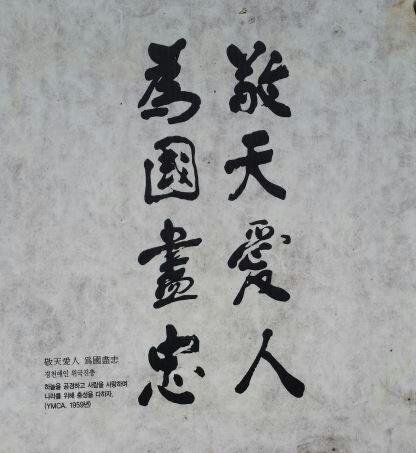 敬天愛人
為國盡忠
敬天愛人 爲國盡忠
경천애인 위국진충
하늘을 공경하고 사람을 사랑하며
나라를 위해 충성을 다하자.
(YMCA. 1959년)